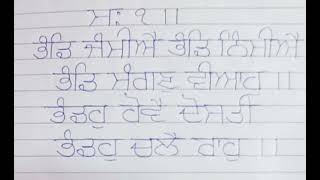 ਮਃ ੧ ॥
ਭੰਡਿ ਜੰਮੀਐ ਭੰਡਿ ਨਿੰਮੀਐ
ਭੰਡਿ ਮੰਗਣੁ ਵੀਆਹੁ ॥
ਭੰਡਹੁ ਹੋਵੈ ਦੋਸਤੀ
ਭੰਡਹੁ ਚਲੈ ਰਾਹੁ ॥